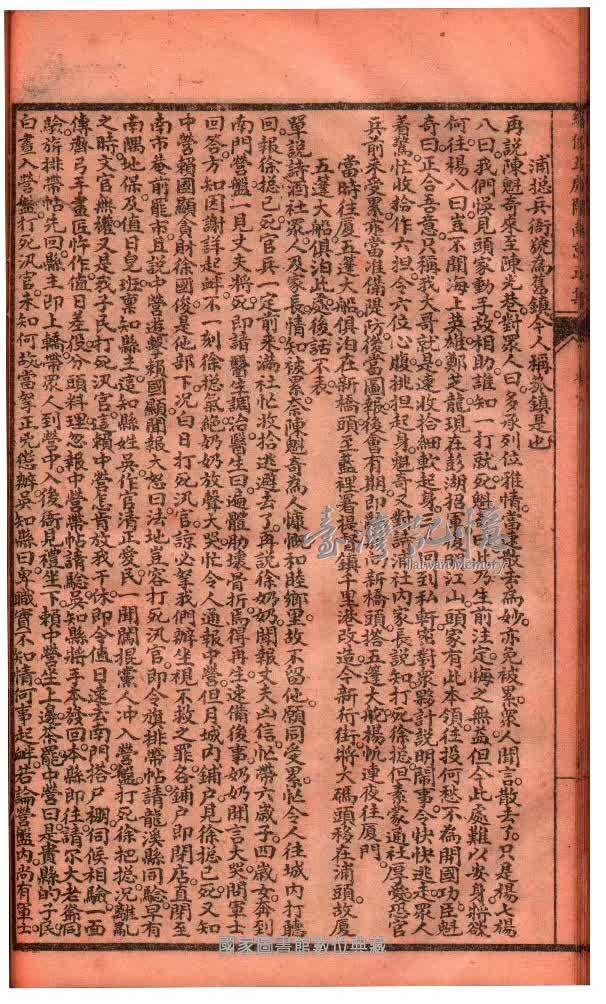 浦摠兵衙號為舊鎮今人稱炊鎮是也
再說陳魁奇來至陳光巷對眾人曰多承列位雅情當速散去為妙亦免被累眾人聞言散去了只是楊七楊
八曰我們悞見頭家動手故相助誰知一打就死魁 此乃生前注定悔之無益但今此處難以安身將欲
何往楊八曰豈不聞海上英雄鄭芝龍現在彭湖招軍 明江山頭家有此本領往投何愁不為開國功臣魁
奇曰正合吾意只稱我大哥就是速收拾細軟起身 回到私斬密對眾夥計說明鬧事今快快逃走眾人
着驚忙收拾作六担令六位心腹挑担起身魁奇又對詩浦社內家長說知打死徐摠但素家通社厚愛恐官
兵前來受累亦當准備隄防後當圖報後會有期即 尚新橋頭搭五蓬大舡揚帆連夜往厦門
當時往厦五蓬大船俱泊在新橋頭至藍理署提 鎮千里港改造今新行街將大碼頭移在浦頭故厦
五蓬大船俱泊此處後話不表
單說詩浦社眾人及家長情知被累奈陳魁奇為人慷慨和睦鄉里故不留他願同受累忙令人往城內打聽
回報徐摠已死官兵一定前來滿社忙收拾逃避去了再說徐奶奶聞報丈夫凶信忙帶六歲子四歲女奔到
南門營盤一見丈夫將死即請醫生調治醫生曰遍體肋壞骨折焉得再生速備後事奶奶聞言大哭問軍士
回答方知因謝詳起衅不一刻徐摠氣絕奶奶放聲大哭忙令人通報中營但月城內鋪户見徐摠已死又知
中營賴國顯貪財徐國俊是他部下況白日打死汛官諒必拏我們辦坐視不救之罪各鋪户即閉店直閉至
南市菴前罷市且說中營遊擊賴國顯聞報大怒曰法地豈容打死汛官即令旗排帶帖請龍溪縣同驗早有
南隅地保及值日皂班稟知縣主這知縣姓吳作官清正愛民一聞闖棍黨人冲入營盤打死徐把摠況離亂
之時文官無權又是我子民打死汛官這賴中營怎肯放我干休即令值日速去南門搭尸棚伺候相驗一面
傳齊弓手畫匠仵作值日差役分頭料理忽報中營帶帖請驗吳知縣將手本發回本縣即往請尔大老爺同
驗旂排帶帖先回縣主即上轎帶眾人到營中入後衙見禮坐下賴中營坐上邊茶罷中營曰是貴縣的子民
白晝入營盤打死汛官未知何故當拏正兇懲辦吳知縣曰卑職實不知情何事起衅若論營盤內尚有軍士
臺灣記憶
Taiwan Memory
國家圖書館數位典藏